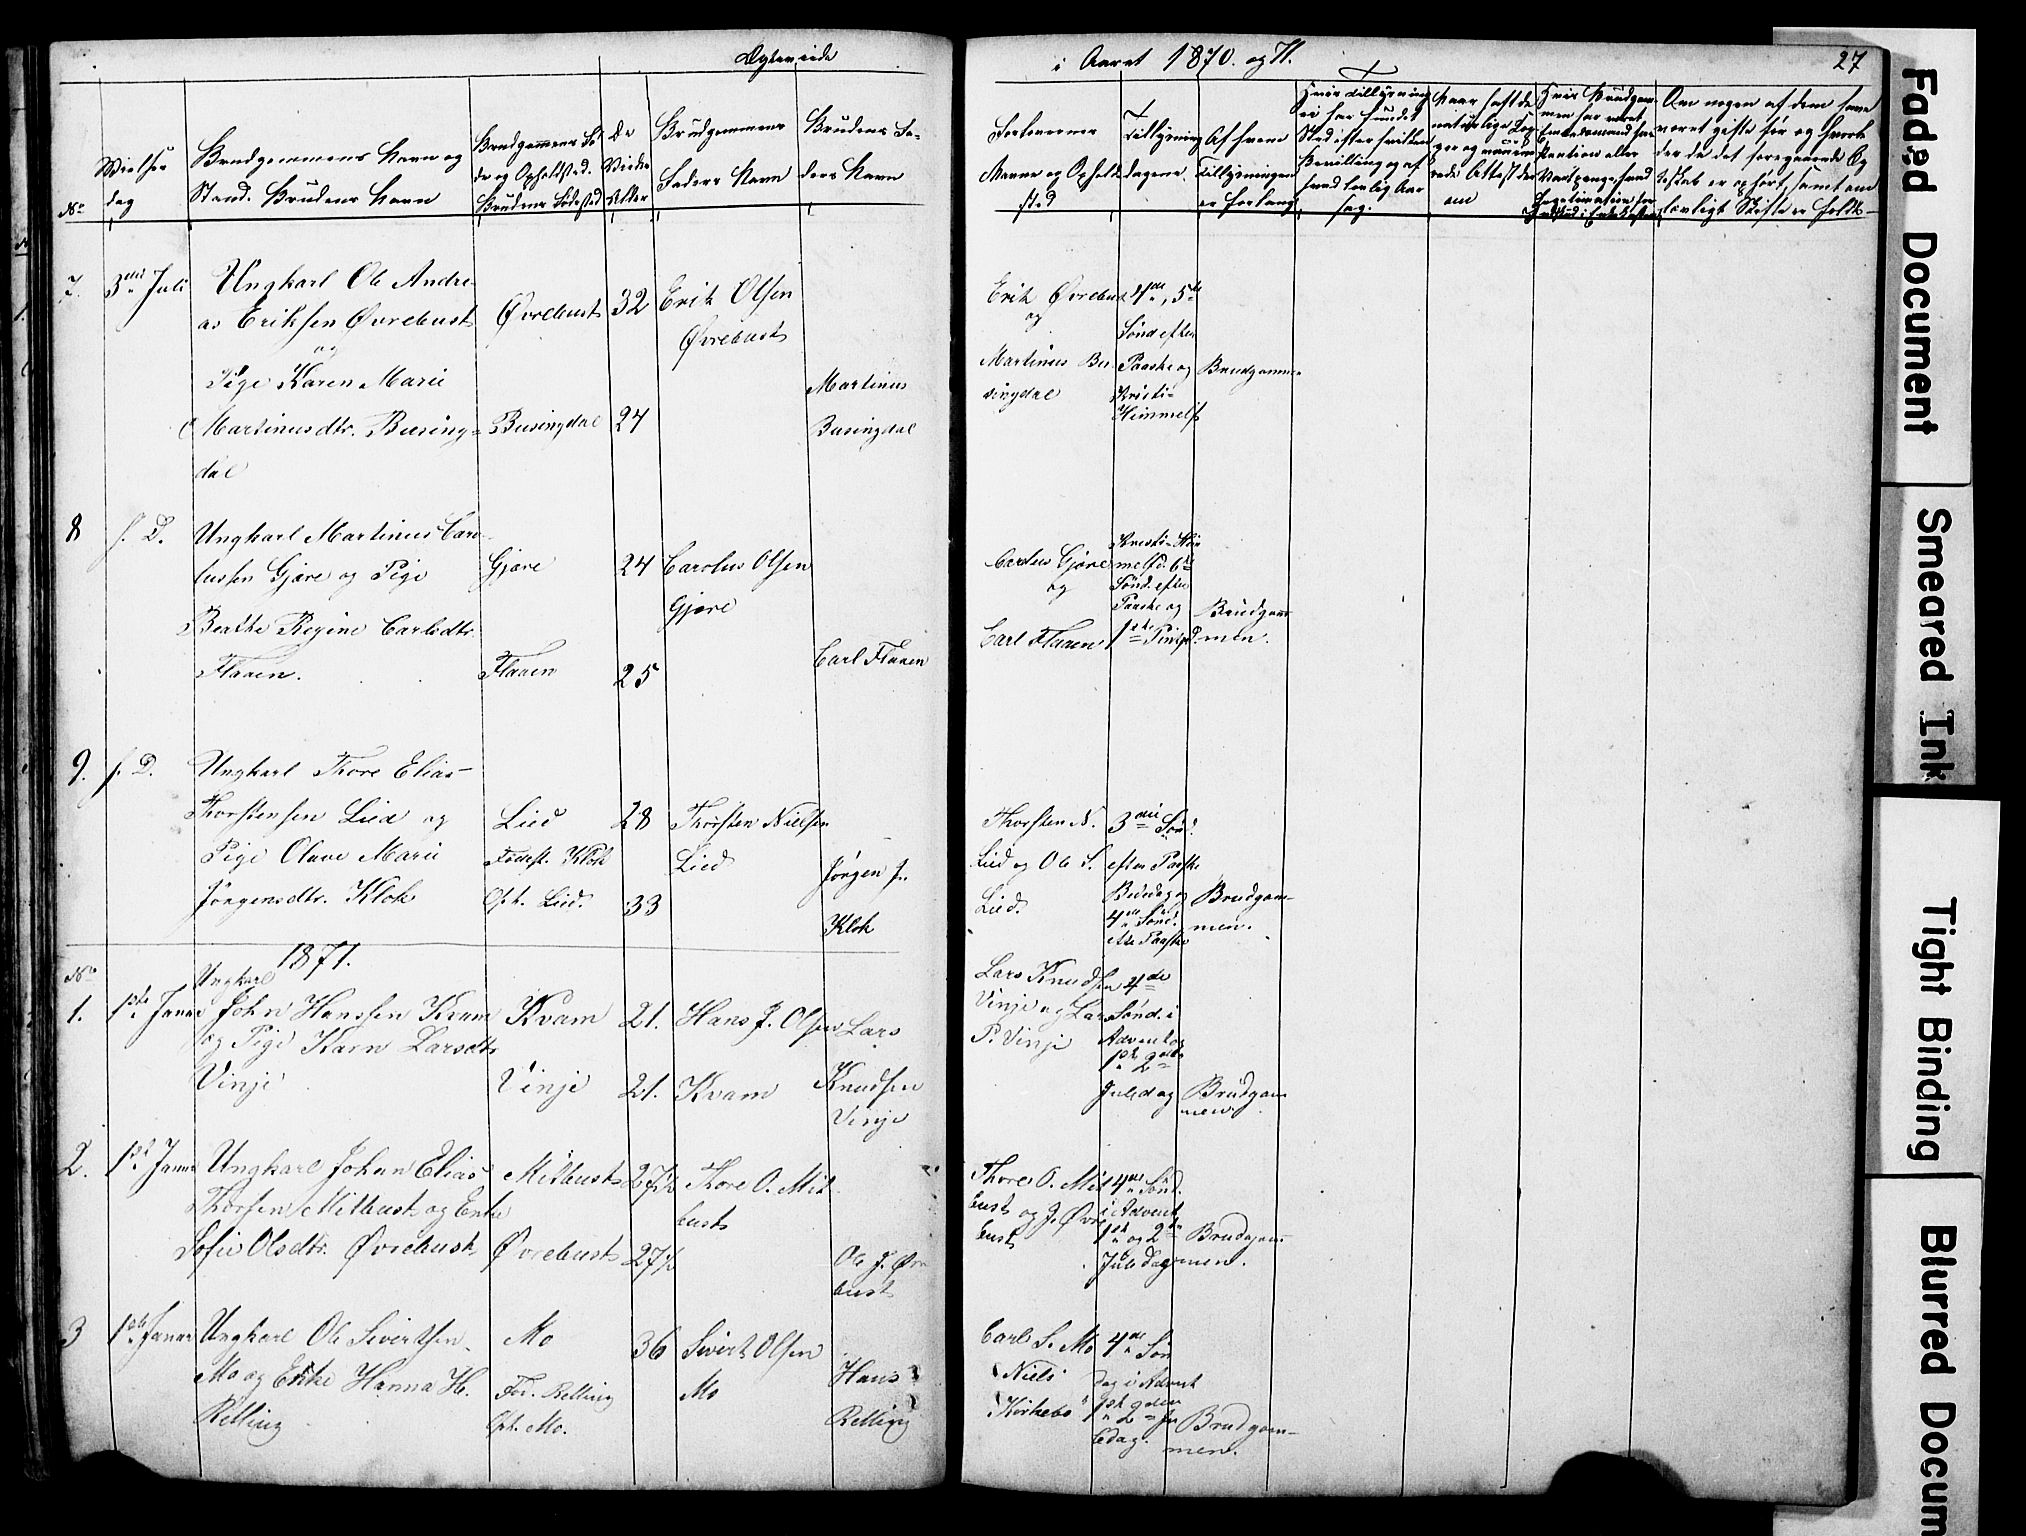 Ægteviede
i Aaret 1870. og 71.
27
No
Vielses
dag
Brudgommens Navn og
Stand. Brudens Navn
Brudgommens Fø
de og Opholdsted.
Brudens Fødested
De
Viedes
Alder
Brudgommens
Faders Navn
Brudens Fa-
ders Navn
Forlovernes
Navne og Ophold
sted
Tillysning
dagene.
Af hvem
Tillysningen
er forlangt
7. 3die Juli
Ungkarl Ole Andre-
as Eriksen Øvrebust
og
Pige Karen Marie
Martinusdtr. Busing-
dal
Øvrebust 32
Erik Olsen
Øvrebust
Busingdal 24
Martinus
Busingdal
Erik Øvrebust
og
Martinus Bu
singdal
4de, 5te
Sønd efter
Paaske og
Kristi-
Himmelf
Brudgomm-
8 s. D.
Ungkarl Martinus Caro-
lussen Gjære og Pige
Beathe Regine Carlsdtr.
Flaaen.
Gjære 24
Carolus Olsen
Gjære
Flaaen 25
Carl Flaaen
Carolus Gjære
og
Carl Flaaen
Kristi-Him
melfd. 6te
Sønd. efter
Paaske og
1ste Pintsd.
Brudgom
men.
9. s. D.
Ungkarl Thore Elias
Thorstensen Lied og
Pige Olave Marie
Jørgensdtr. Klok
Lied 28
Fødest. Klok
Oph. Lied. 33
Thorsten Nielsen
Lied
Jørgen J.
Klok
Thorsten N.
Lied og Ole S.
Lied.
3die Sønd.
efter Paaske
Bededag og
4de Sønd.
efter Paaske
Brudgom-
men.
1871.
No
1. 1ste Januar
Ungkarl
John Hanssen Kvam
og Pige Karn Larsdtr
Vinje
Kvam 21.
Vinje 21.
Hans J. Olsen
Kvam
Lars
Knudsen
Vinje
Lars Knudsen
Vinje og Lars
P. Vinje
4de
Sønd. i
Advent og
1ste 2den
Juledag
Brudgom
men.
2. 1ste Januar
Ungkarl Johan Elias
Thorsen Mitbust og Enke
Sofie Olsdtr. Øvrebust
Mitbust 27½
Øvrebust 27½
Thore O. Mit
bust
Ole J. Øvre
bust
Thore O. Mit
bust og J. Øvre
bust
4de Sønd.
i Advent
1ste og 2den
Juledag
Brudgom
men.
3 1ste Januar
Ungkarl Ole Sivertsen
Mo og Enke Hanna H.
Relling
Mo 36
Fød. Relling
Oph. Mo.
Sivert Olsen
Mo
Hans
Relling
Carl S. Mo
Niels
Kirkebø
4de Søn
dag i Advent
1ste 2den Ju
ledag.
Brudgom-
men.
Faded Document
Smeared Ink
Tight Binding
Blurred Docum